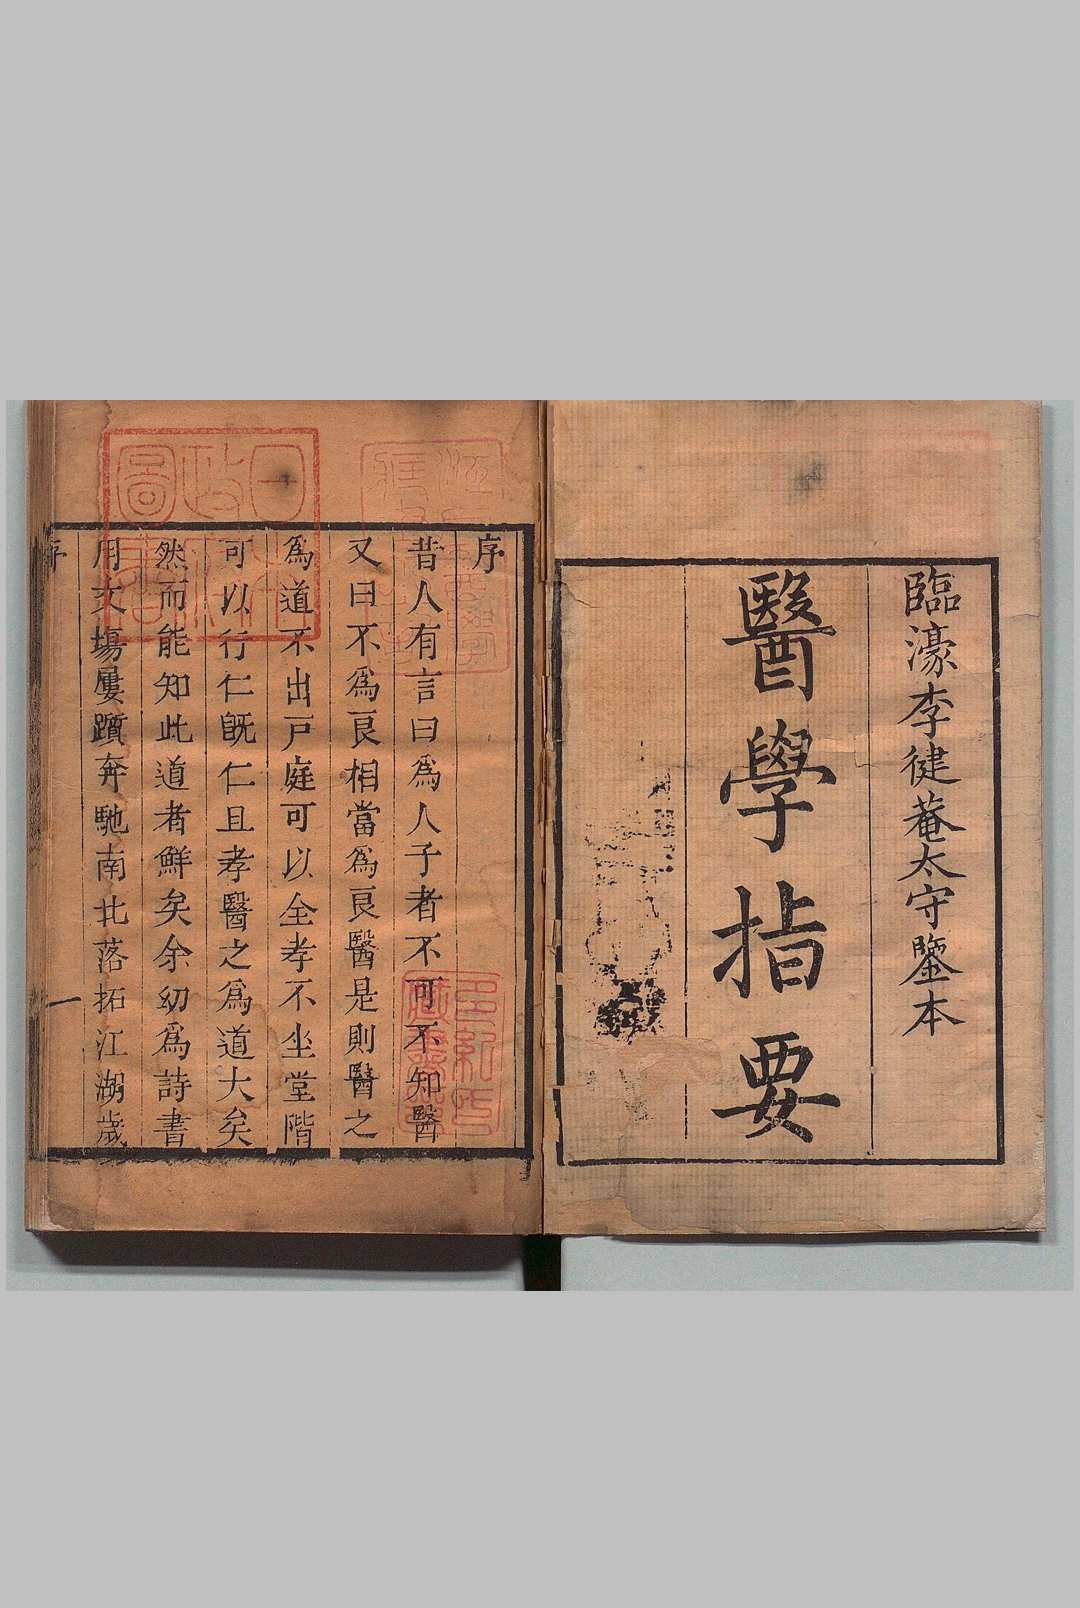 臨濠李徤菴太守鑒本
醫學指要
序
昔人有言曰爲人子者不可不知醫
又曰不爲良相當爲良醫是則醫之
爲道不出戸庭可以全孝不坐堂階
可以行仁既仁且孝醫之爲道大矣
然而能知此道者鮮矣余幼爲詩書
用文塲屢躓奔馳南北落拓江湖歲
序
一
日本
政府
圖書